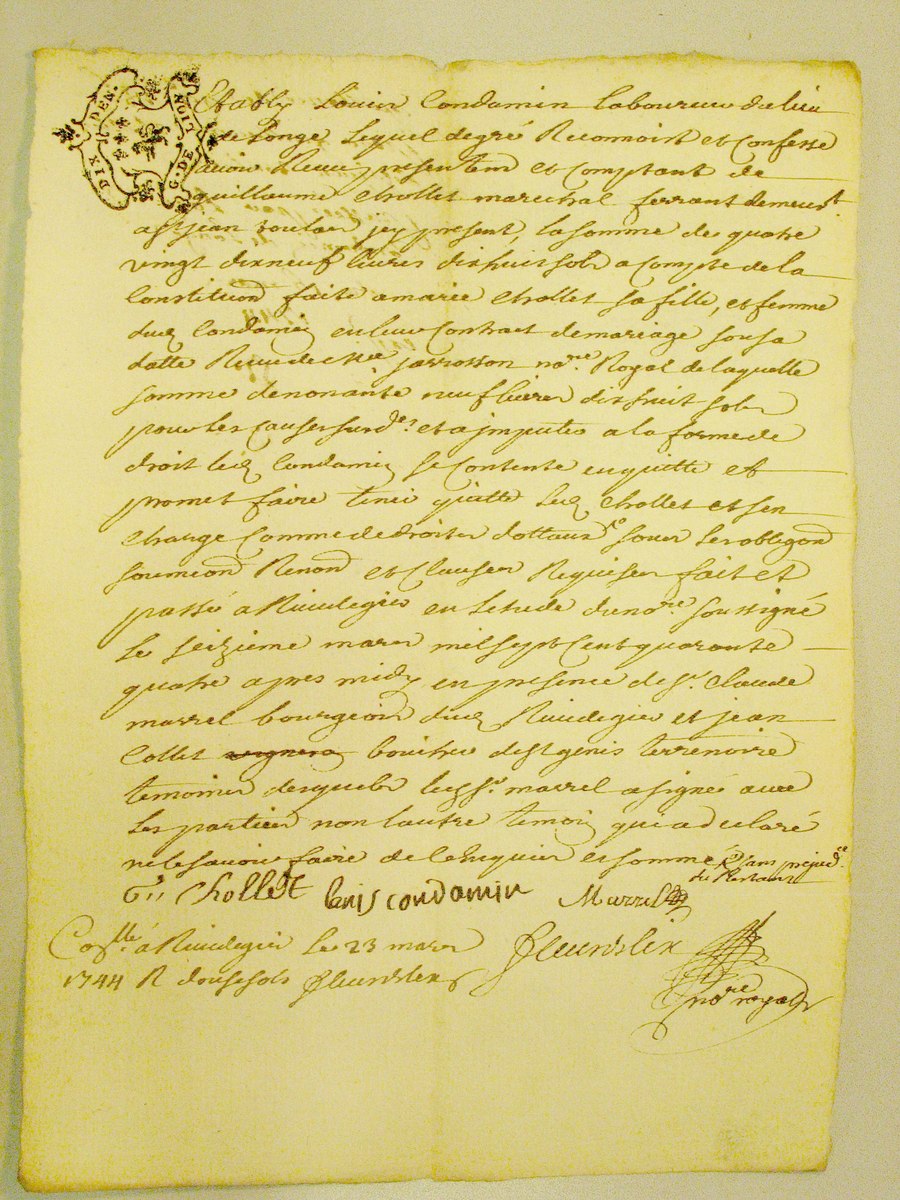 DIX DEN. G. DE LION
Establÿ Louis Condamin laboureur du lieu
de Longe lequel de gré Reconnoit et Confesse
avoir Receu presentem et Comptant de
guillaume Chollet marechal ferrant demeurt
a St jean toulas jcy present, la somme de quatre
vingt dixneuf livres dixhuit sols a Compte de la
Constitution faite a marie Chollet sa fille, et femme
dud Condamin en leur Contract de mariage sous sa
datte Receu de Me jarrosson nore Royal de laquelle
somme de nonante neuf livres dixhuit sols
pour les Causes susdes et a jmputer a la forme de
droit led Condamin se Contente en quitte et
promet faire tenir quitte led Chollet et s'en
Charge Comme de droit sous les obligaons
soumeons Renons et Clauses Requises fait et
passé a Rivedegier en letude du nore soussigné
le seizieme mars mil sept Cent quarante
quatre apres midy en presence de sr. Claude
marrel bourgeois dud Rivedegier et jean
Collet boucher de St genis terrenoire
temoins desquels led sr. marrel a signé avec
les parties non l'autre temoin qui a declaré
ne le savoir faire de ce Enquis et sommé sans prejudce
du Restant
Gu Chollet Louis condamin Marrel
Collé a Rivedegier le 23 mars
1744 R douse sols Fleurdelix
Fleurdelix
nore royal